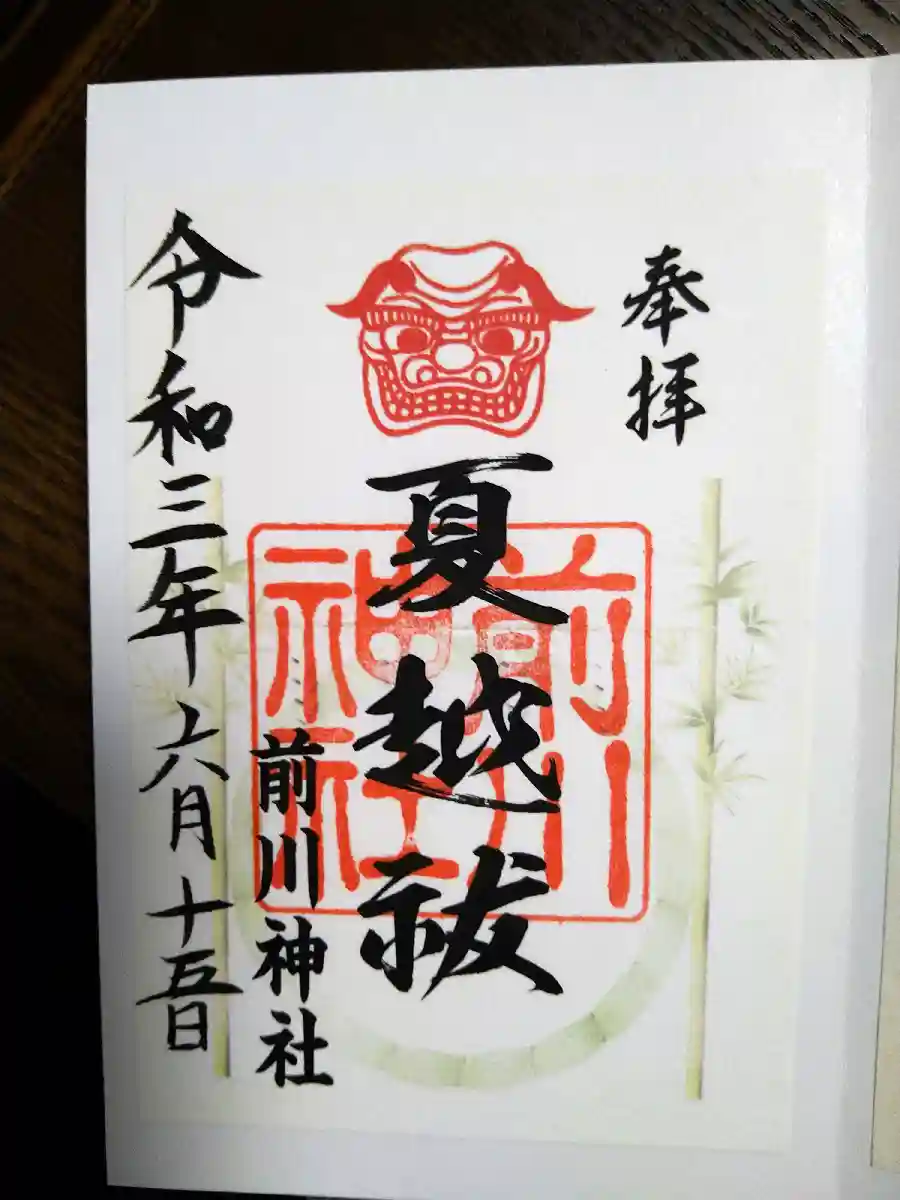 奉拝
夏越祓
前川
神社
前川神社
令和三年六月十五日